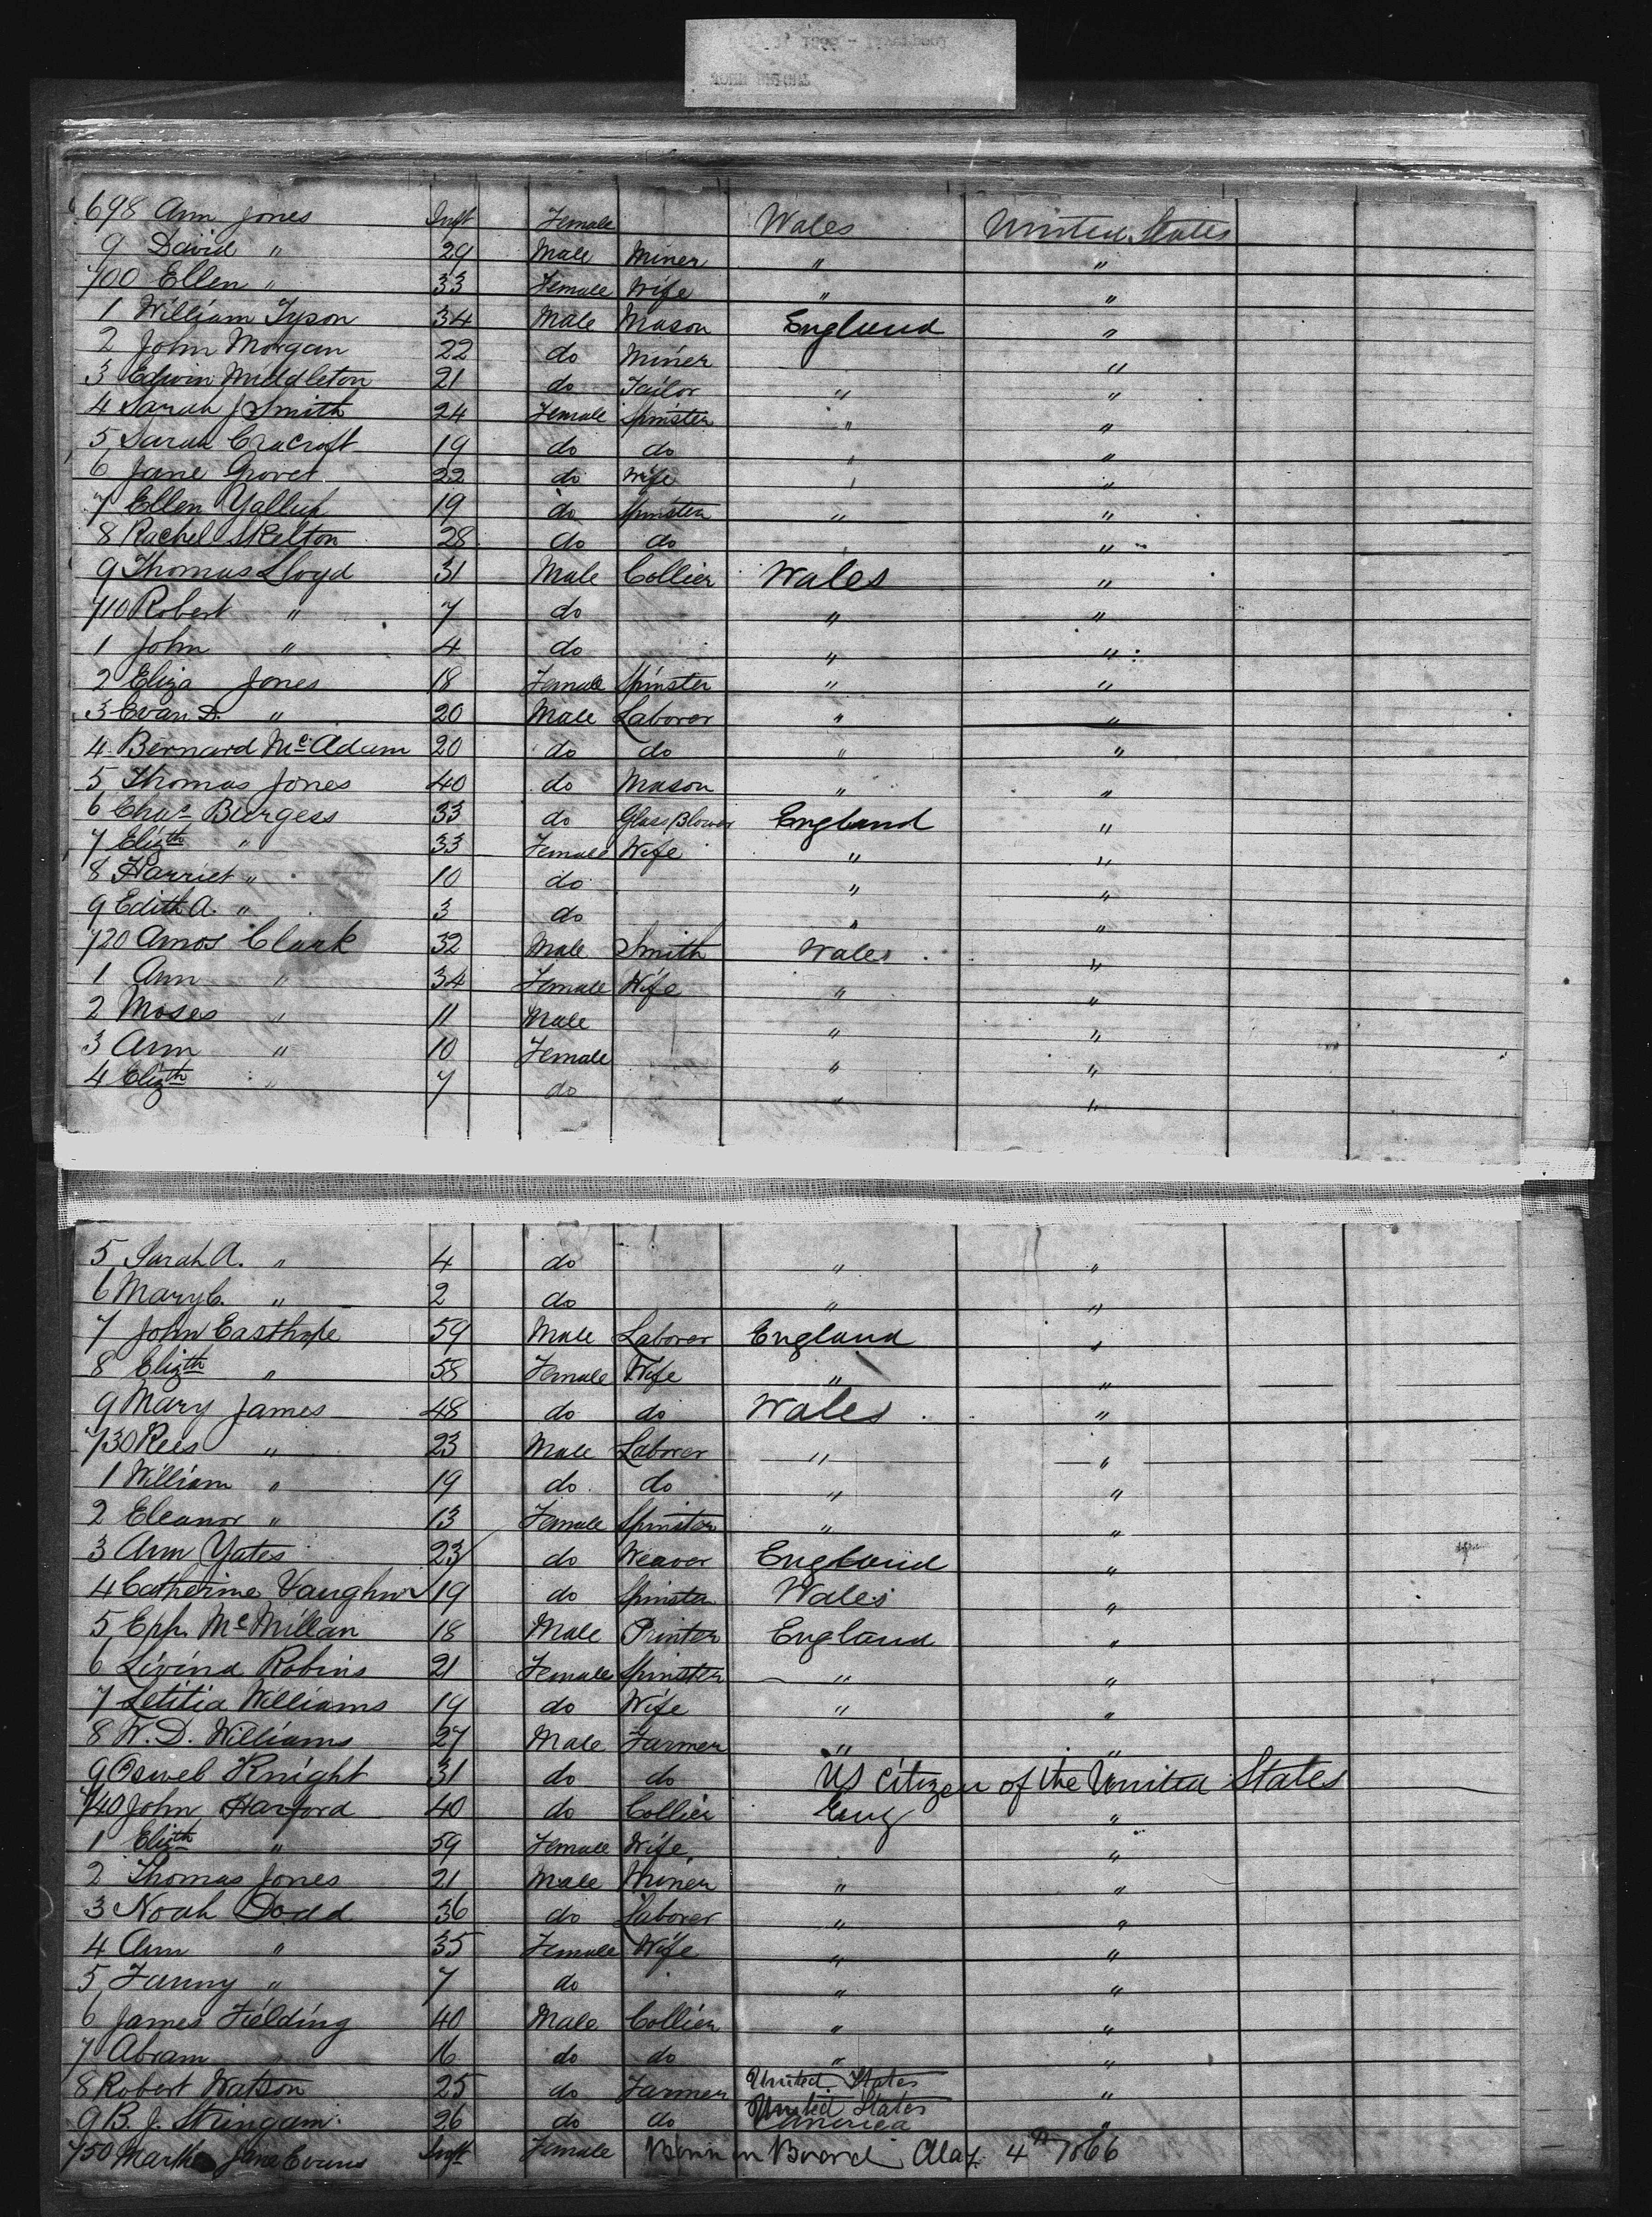 698 Ann Jones Inft Female Wales United States
9 David " 29 Male Miner " "
700 Ellen " 33 Female Wife " "
1 William Tyson 34 Male Mason England "
2 John Morgan 22 do Miner "
3 Edwin Middleton 21 do Tailor " "
4 Sarah J Smith 24 Female Spinster " "
5 Sarah Cracroft 19 do do " "
6 Jane Grovet 22 do Wife " "
7 Ellen Yallup 19 do Spinster " "
8 Rachel Skelton 28 do do "
9 Thomas Lloyd 31 Male Collier Wales "
710 Robert " 7 do " "
1 John " 4 do " "
2 Eliza Jones 18 Female Spinster " "
3 Evan D. " 20 Male Laborer " "
4 Bernard Mc Adam 20 do do " "
5 Thomas Jones 40 do Mason " "
6 Chas Burgess 33 do Glass Blower England "
7 Elizth " 33 Female Wife " "
8 Harriet " 10 do " "
9 Edith A. " 3 do " "
720 Amos Clark 32 Male Smith Wales "
1 Ann " 34 Female Wife " "
2 Moses " 11 Male " "
3 Ann " 10 Female " "
4 Elizth " 7 do " "
5 Sarah A. " 4 do " "
6 Mary C. " 2 do " "
7 John Easthope 59 Male Laborer England "
8 Elizth " 58 Female Wife " "
9 Mary James 48 do do Wales "
730 Rees " 23 Male Laborer " "
1 William " 19 do do " "
2 Eleanor " 13 Female Spinster " "
3 Ann Yates 23 do Weaver England "
4 Catherine Vaughn 19 do Spinster Wales "
5 Eph. Mc Millan 18 Male Printer England "
6 Livind Robins 21 Female Spinster " "
7 Letitia Williams 19 do Wife " "
8 W. D. Williams 27 Male Farmer " "
9 Knight 31 do do US Citizen of the United States
740 John Harford 40 do Collier Eng "
1 Elizth " 59 Female Wife "
2 Thomas Jones 21 Male Miner " "
3 Noah Dodd 36 do Laborer " "
4 Ann " 35 Female Wife " "
5 Fanny " 7 do " "
6 James Fielding 40 Male Collier " "
7 Abram " 16 do do " "
8 Robert Watson 25 do Farmer United States "
9 B. J. Stringam 26 do do United States America "
750 Martha Jane Evans Inft Female Born on Board May 4th 1866